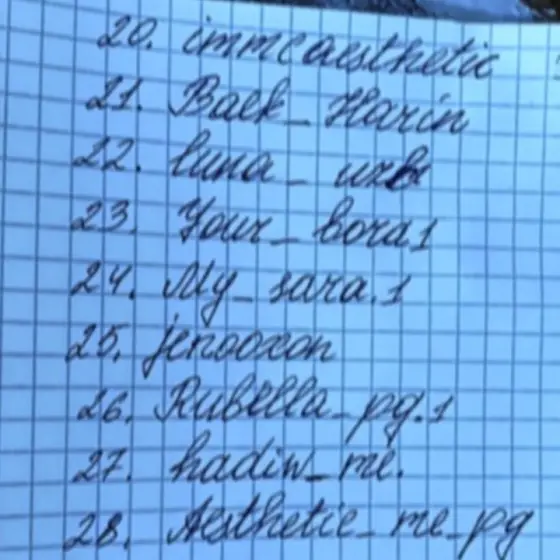 20. immcaesthetic
21. Baek_Harin
22. luna_uzb
23. Your_bora1
24. My_sara.1
25. jenooxon
26. Rubella_pg.1
27. hadiw_me.
28. Aesthetic_me_pg